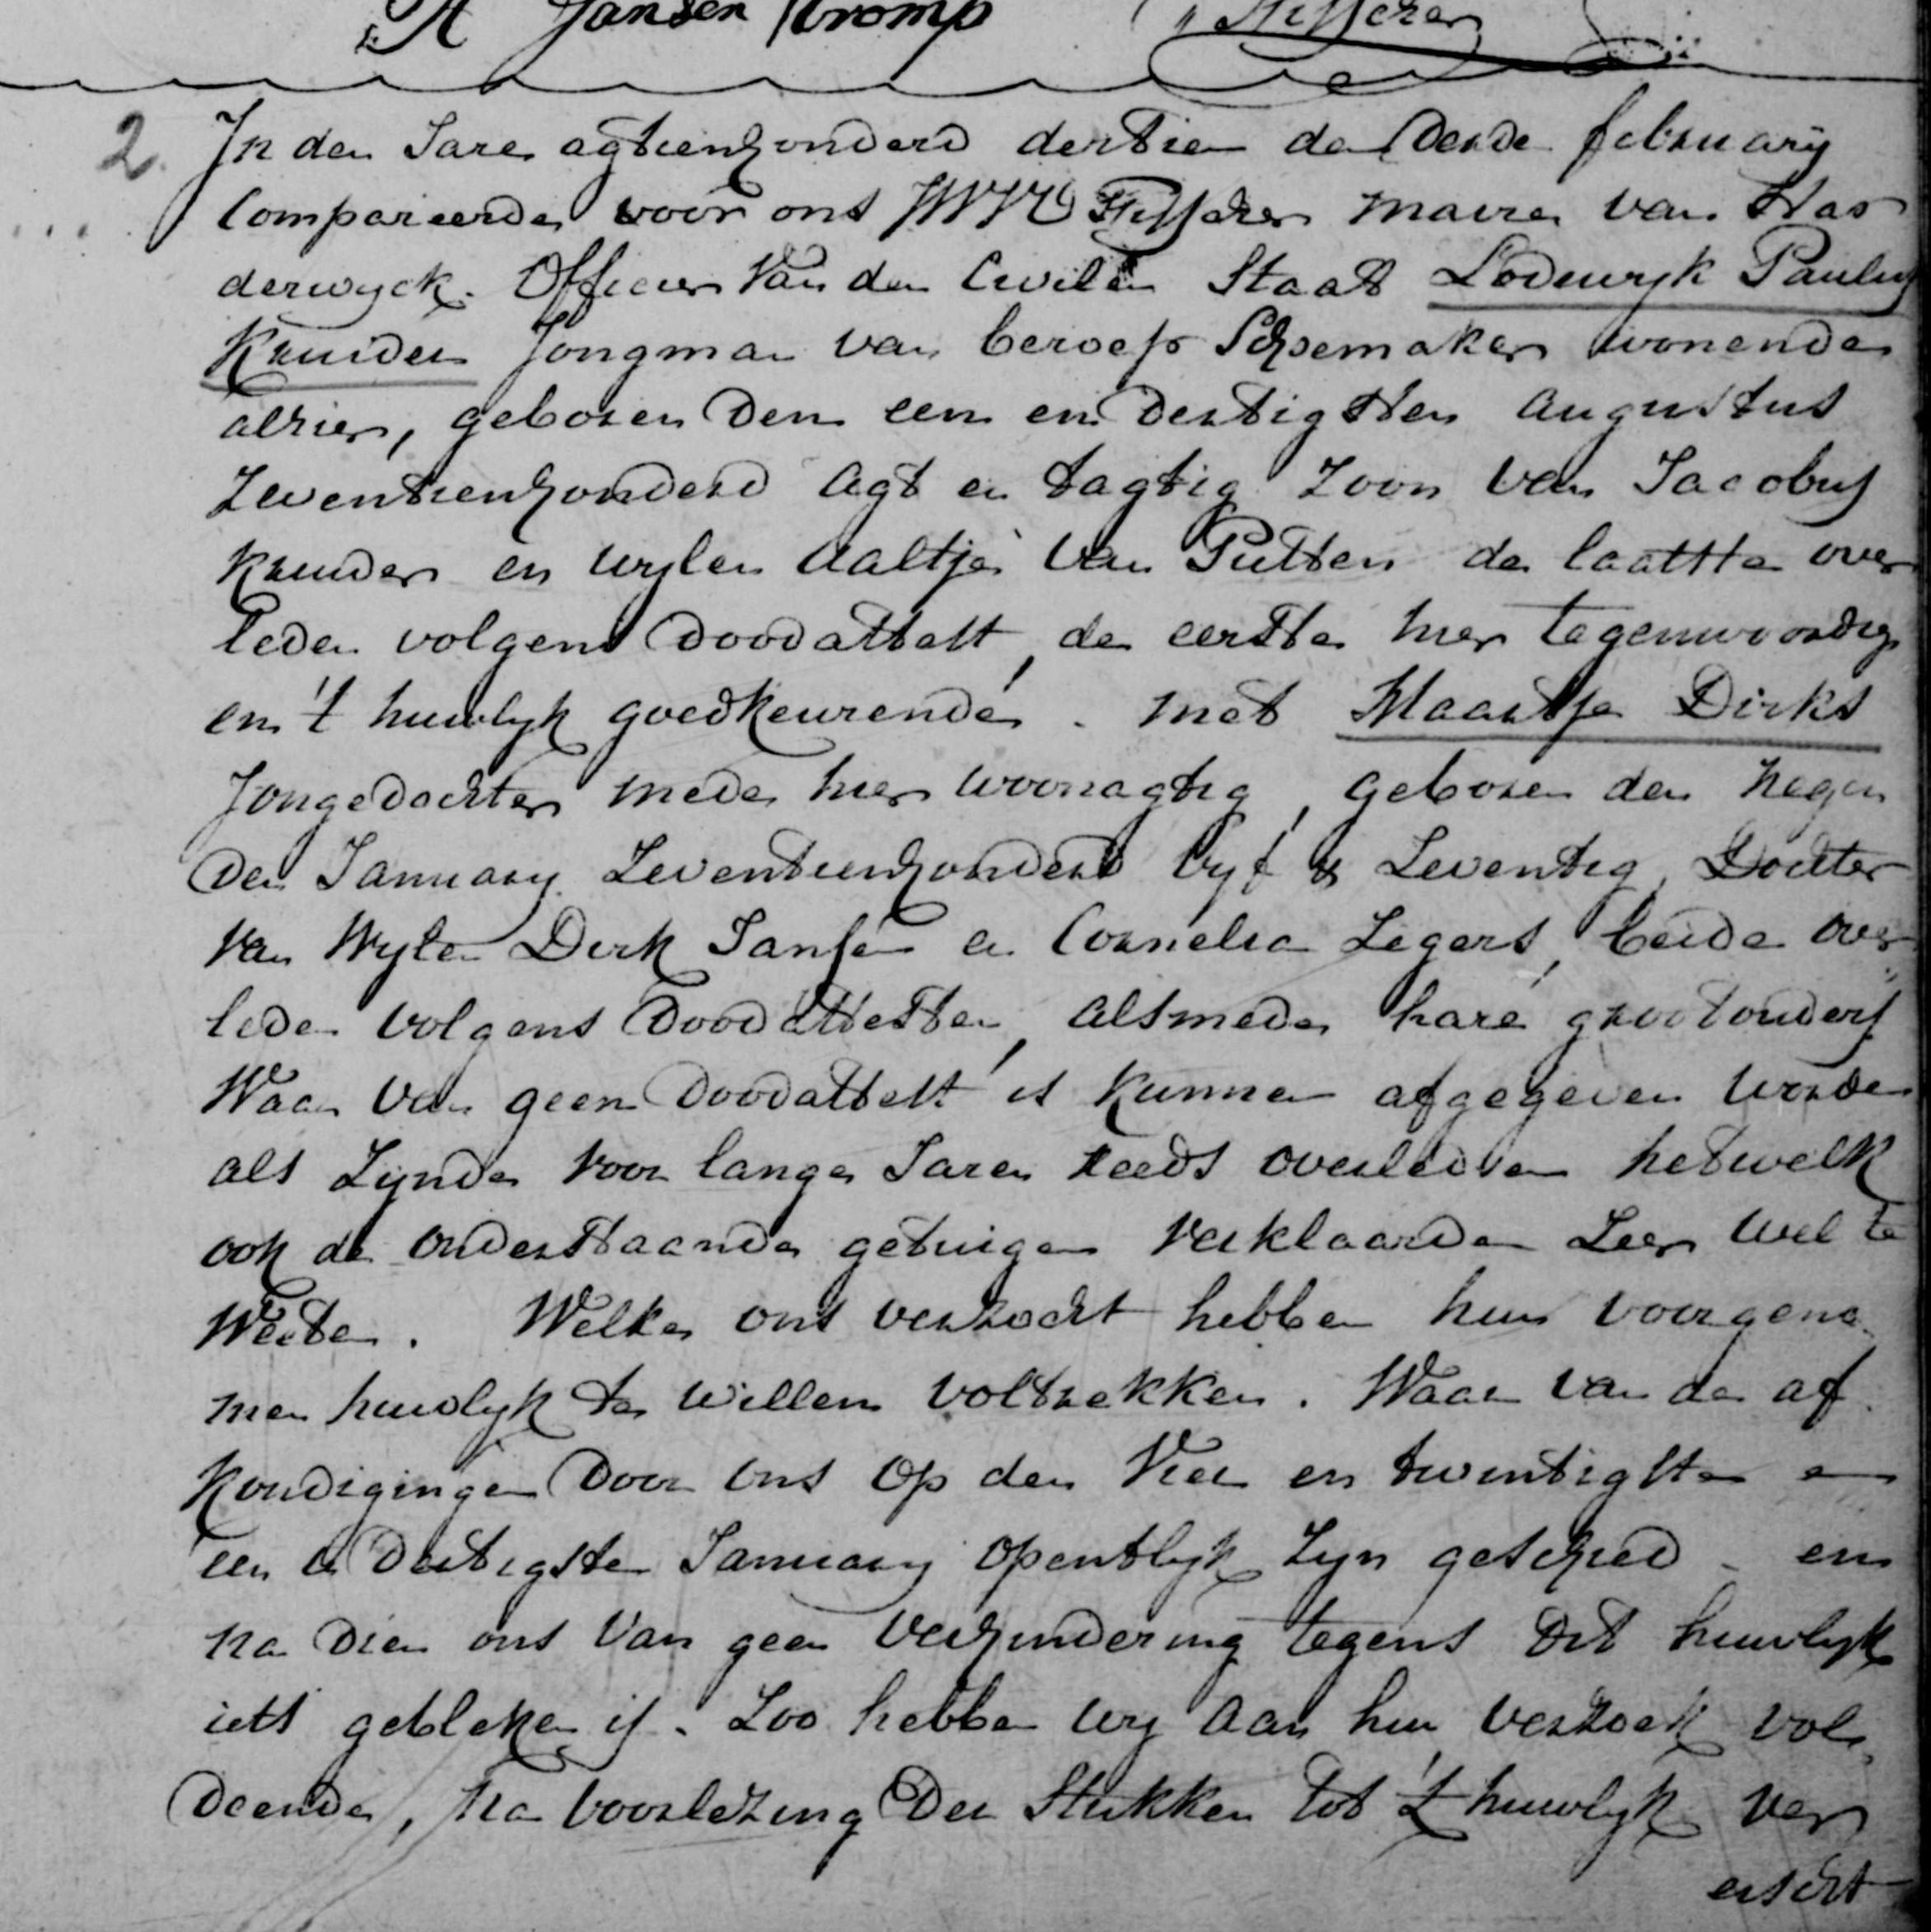 A Jansen Kromp
2. In den Jare agtienhonderd dertien den derde february
Compareerde voor ons Maire van Har
derwyck. Officier van den Civilen Staat Lodewyk Paulus
Kruider Jongman van beroep Schoemaker wonende
alhier, geboren den een en dertigsten Augustus
Zeventienhonderd agt en tagtig Zoon van Jacobus
Kruider en wylen Aaltje van Putten de laatste over
leden volgens doodattest, de eerste hier tegenwoordig
en 't huwlyk goedkeurende. met Maartje Dirks
Jongedochter mede hier woonagtig, geboren den negen
den January Zeventienhonderd vyf & Zeventig, Dochter
van Wylen Dirk Jansen en Cornelia Zegers, beide over
leden volgens doodattesten, alsmede hare grootouders
Waar van geen doodattest is kunnen afgegeven worden
als Zynde voor lange Jaren reeds overleden hetwelk
ook de onderstaande getuigen verklaarden Zeer wel te
Weeten. Welke ons verzocht hebben hun voorgeno
men huwlyk te willen voltrekken. Waar van de af
kondigingen door ons op den Vier en twintigsten en
een en dertigsten January opentlyk Zyn geschied - en
na dien ons van geen verhindering tegens dit huwlyk
iets gebleken is. Zoo hebben wy aan hun verzoek vol
doende, na voorlezing der Stukken tot 't huwlyk ver
eischt